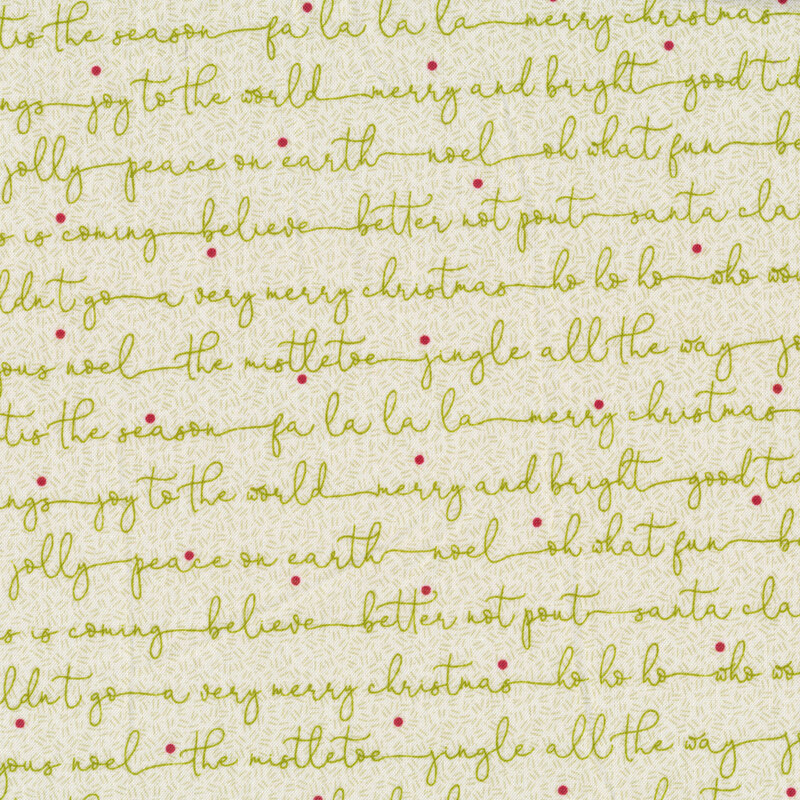 tis the season fa la la la merry christmas
ngs joy to the world merry and bright good tid
jolly peace on earth noel oh what fun be
s is coming believe better not pout santa cla
ldn't go a very merry christmas ho ho ho who wou
ous noel the mistletoe jingle all the way jo
tis the season fa la la la merry christmas
ngs joy to the world merry and bright good tid
jolly peace on earth noel oh what fun b
s is coming believe better not pout santa cla
ldn't go a very merry christmas ho ho ho who wo
yous noel the mistletoe jingle all the way jo